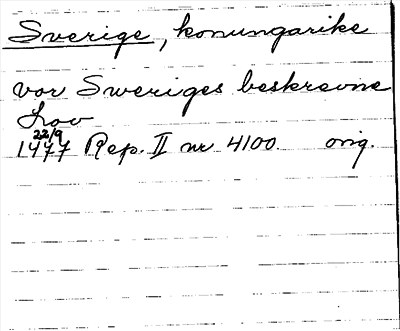 Sverige, konungarike
vor Sweriges beskrevne
Lov
22/9
1477 Rep. II nr 4100 orig.